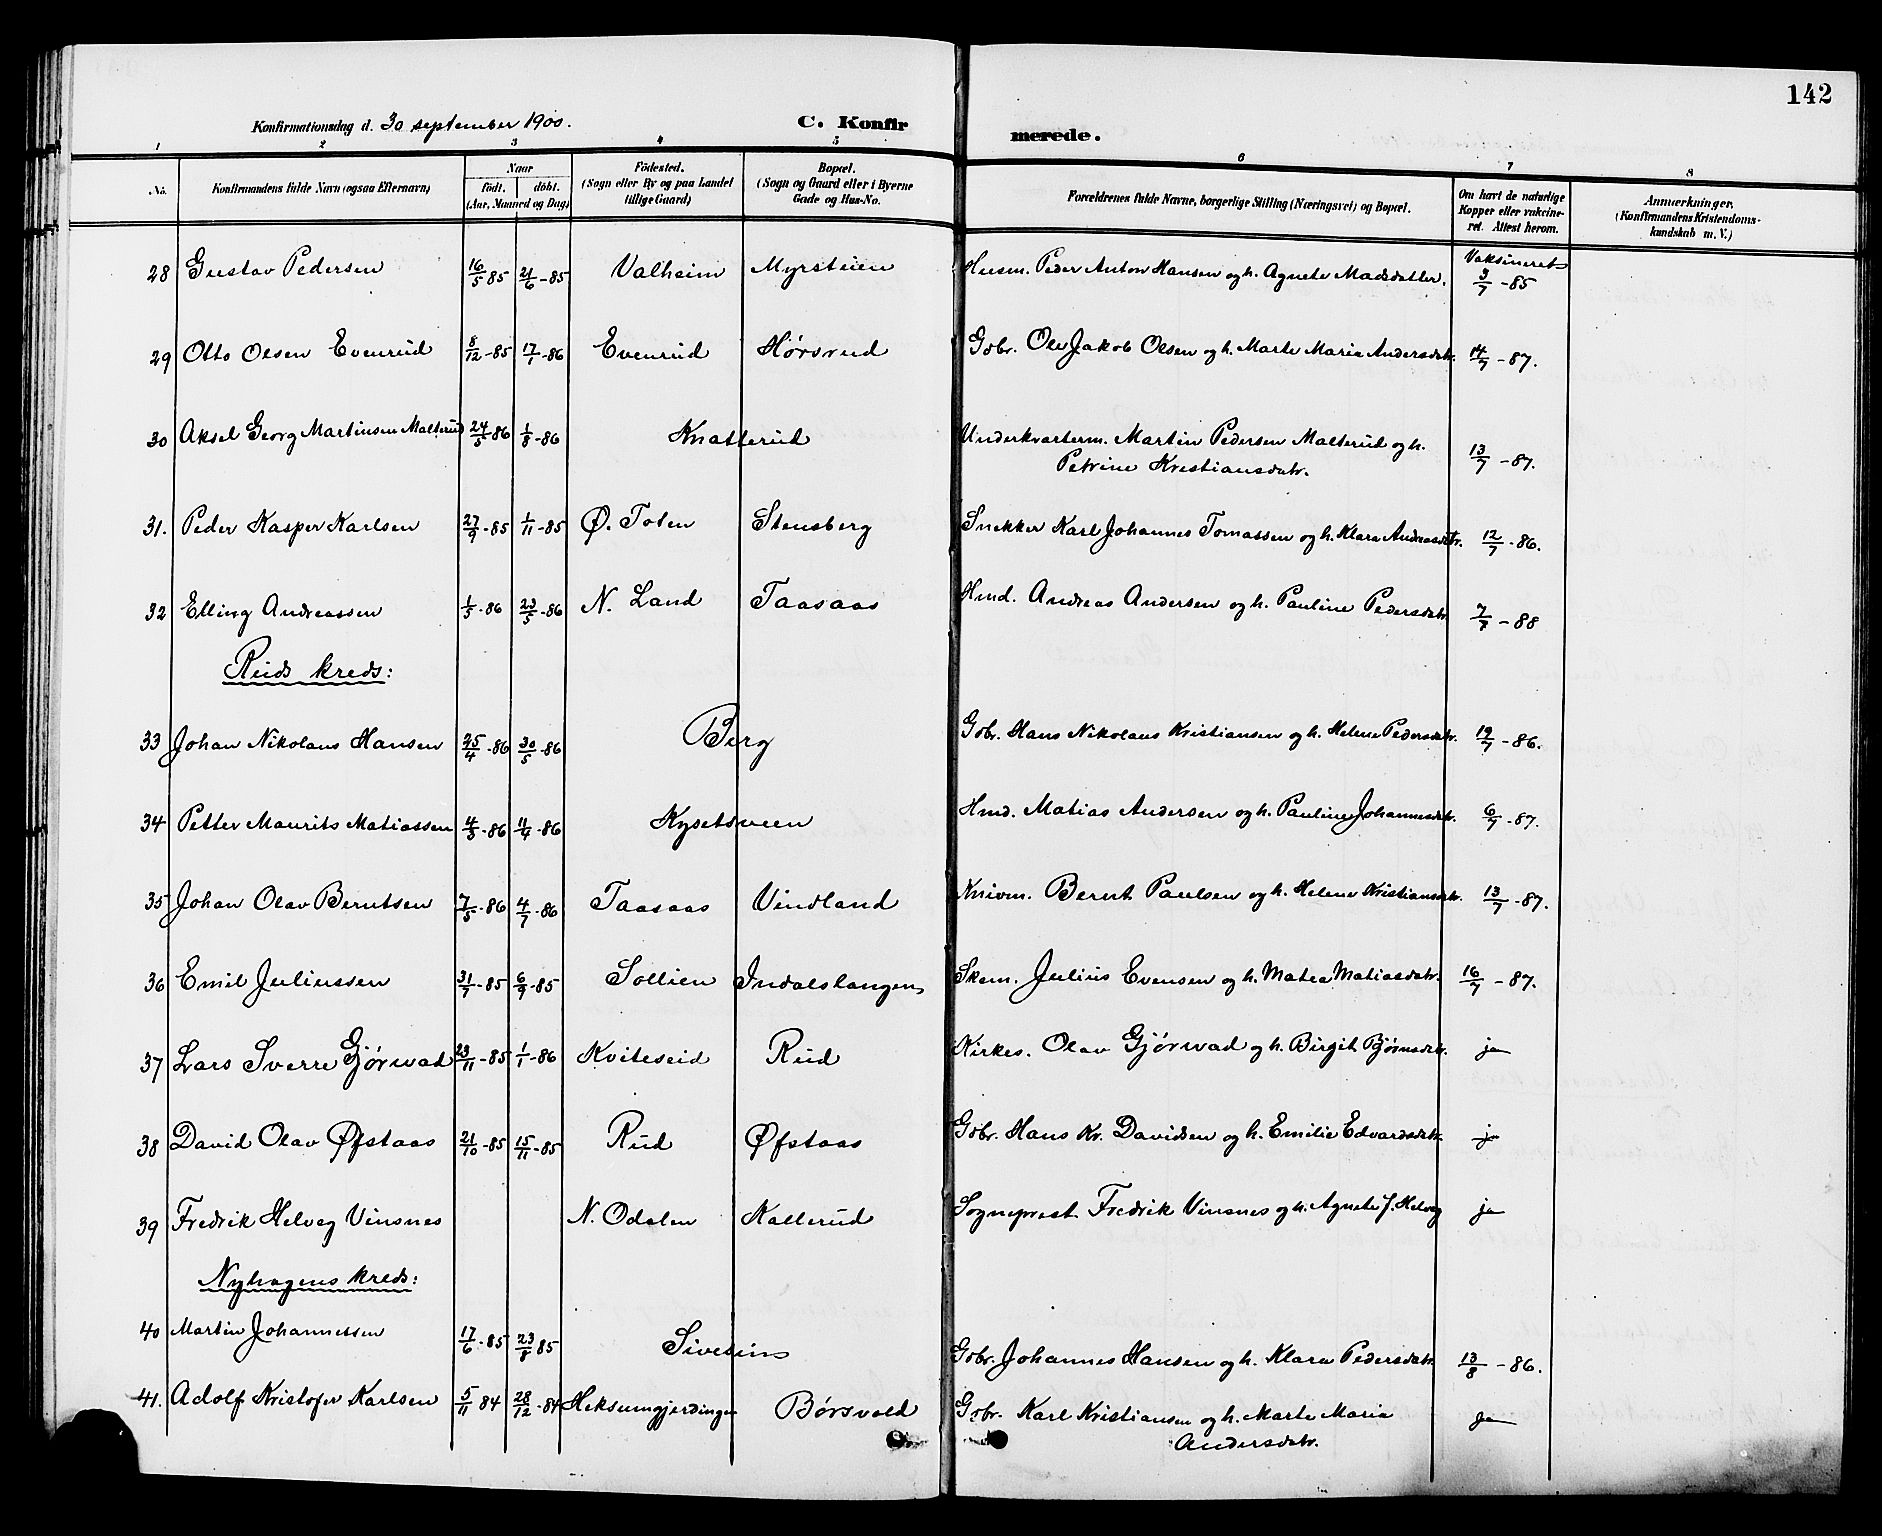 142
Konfirmationsdag d. 30 september 1900. C. Konfirmerede.
1 2 3 4 5 6 7 8
No. Konfirmandens fulde Navn (ogsaa Efternavn) Naar födt. döbt. (Aar, Maaned og Dag) Födested. (Sogn eller By og paa Landet tillige Gaard) Bopæl. (Sogn og Gaard eller i Byerne Gade og Hus-No. Forældrenes fulde Navne, borgerlige Stilling (Næringsvei) og Bopæl. Om havt de naturlige Kopper eller vakcineret. Attest herom. Anmærkninger. (Konfirmandens Kristendomskundskab m. V.)
28 Gustav Pedersen 16/5 85 21/6-85 Valheim Myrsteien Husm. Peder Anton Hansen og h. Agnete Madsdatter. Vaksineret 3/7-85
29 Otto Olsen Evenrud 8/12-85 17/1-86 Evenrud Hørsrud Gbr. Ole Jakob Olsen og h. Marte Maria Andersdatr. 14/7-87.
30 Aksel Georg Martinsen Malterud 24/5 86 1/8-86 Knatterud Underkvarterm. Martin Pedersen Malterud og h.
Petrine Kristiansdatr. 13/7-87.
31. Peder Kasper Karlsen 27/9-85 1/11-85 Ø. Toten Stensberg Snekker Karl Johannes Tomassen og h. Klara Andreasdtr. 12/7-86.
32 Elling Andreassen 1/5-86 23/5-86 N. Land Taasaas Hmd. Andreas Andersen og h. Pauline Pedersdatr 7/7-88
Ruds kreds:
33 Johan Nikolaus Hansen 25/4-86 30/5-86 Berg Gbr. Hans Nikolaus Kristiansen og h. Helene Pedersdatr. 19/7-86.
34 Petter Maurits Matiassen 4/3-86 11/4-86 Kysetsveen Hmd. Matias Andersen og h. Pauline Johannesdatr. 6/7-87.
35 Johan Olav Berntsen 7/5-86 4/7-86 Taasaas Vindland Knivm. Bernt Paulsen og h. Helene Kristiansdtr. 13/7-87.
36 Emil Juliussen 31/7-85 6/9-85 Sollien Indalslangen Skom. Julius Evensen og h. Matea Matiasdatr. 16/7-87.
37 Lars Sverre Gjörwad 23/11-85 1/1-86 Kviteseid Rud Kirkes. Olav Gjörwad og h. Birgit Bjørnsdtr. ja
38 David Olav Øfstaas 21/10-85 15/11-85 Rud Øfstaas Gbr. Hans Kr. Davidsen og h. Emilie Edvardsdtr. ja
39 Fredrik Helveg Vinsnes N. Odalen Kallerud Sogneprest Fredrik Vinsnes og h. Agnete f. Helveg ja
Nyhagens kreds:
40 Martin Johannessen 17/6-85 23/8 85 Sivesin Gbr. Johannes Hansen og h. Klara Pedersdatr. 13/8-86.
41. Adolf Kristofer Karlsen 5/11 84 28/12-84 Heksumgjerdingen Børsvold Gbr. Karl Kristiansen og h. Marte Maria
Andersdatr. ja